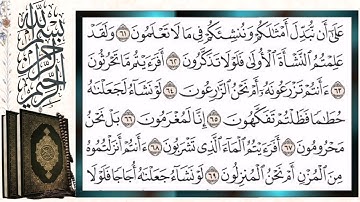 بسم الله الرحمن الرحيم
عَلَىٰٓ أَن نُّبَدِّلَ أَمْثَٰلَكُمْ وَنُنشِئَكُمْ فِى مَا لَا تَعْلَمُونَ ٦١ وَلَقَدْ
عَلِمْتُمُ ٱلنَّشْأَةَ ٱلْأُولَىٰ فَلَوْلَا تَذَكَّرُونَ ٦٢ أَفَرَءَيْتُم مَّا تَحْرُثُونَ
٦٣ ءَأَنتُمْ تَزْرَعُونَهُۥٓ أَمْ نَحْنُ ٱلزَّٰرِعُونَ ٦٤ لَوْ نَشَآءُ لَجَعَلْنَٰهُ
حُطَٰمًا فَظَلْتُمْ تَفَكَّهُونَ ٦٥ إِنَّا لَمُغْرَمُونَ ٦٦ بَلْ نَحْنُ
مَحْرُومُونَ ٦٧ أَفَرَءَيْتُمُ ٱلْمَآءَ ٱلَّذِى تَشْرَبُونَ ٦٨ ءَأَنتُمْ أَنزَلْتُمُوهُ
مِنَ ٱلْمُزْنِ أَمْ نَحْنُ ٱلْمُنزِلُونَ ٦٩ لَوْ نَشَآءُ جَعَلْنَٰهُ أُجَاجًا فَلَوْلَا